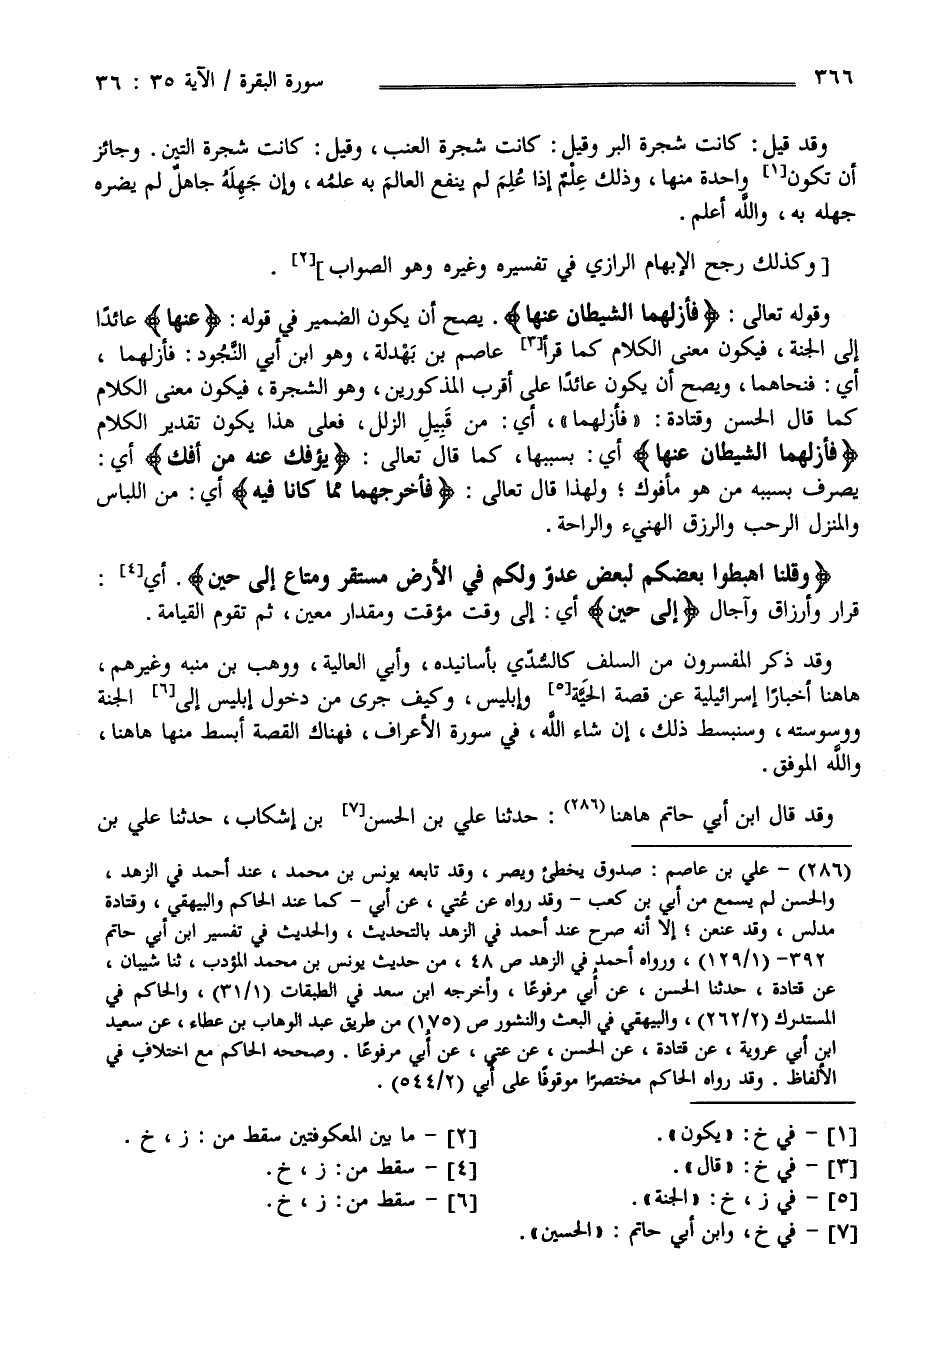 ٣٦٦ سورة البقرة / الآية ٣٥ : ٣٦
وقد قيل : كانت شجرة البر وقيل : كانت شجرة العنب ، وقيل : كانت شجرة التين . وجائز
أن تكون[١] واحدة منها ، وذلك عِلْمٌ إذا عُلِمَ لم ينفع العالمَ به علمُه ، وإن جَهِلَهُ جاهلٌ لم يضره
جهله به ، واللَّه أعلم .
[ وكذلك رجح الإبهام الرازي في تفسيره وغيره وهو الصواب ][٢] .
وقوله تعالى : ﴿فأزلهما الشيطان عنها﴾ . يصح أن يكون الضمير في قوله : ﴿عنها﴾ عائدًا
إلى الجنة ، فيكون معنى الكلام كما قرأ[٣] عاصم بن بَهْدلة ، وهو ابن أبي النَّجُود : فأزلهما ،
أي : فنحاهما ، ويصح أن يكون عائدًا على أقرب المذكورين ، وهو الشجرة ، فيكون معنى الكلام
كما قال الحسن وقتادة : « فأزلهما» ، أي : من قَبِيلِ الزلل ، فعلى هذا يكون تقدير الكلام
﴿فأزلهما الشيطان عنها﴾ أي : بسببها ، كما قال تعالى : ﴿يؤفك عنه من أفك﴾ أي :
يصرف بسببه من هو مأفوك ؛ ولهذا قال تعالى : ﴿فأخرجهما مما كانا فيه﴾ أي : من اللباس
والمنزل الرحب والرزق الهنيء والراحة .
﴿وقلنا اهبطوا بعضكم لبعض عدوّ ولكم في الأرض مستقر ومتاع إلى حين﴾ . أي[٤] :
قرار وأرزاق وآجال ﴿إلى حين﴾ أي : إلى وقت مؤقت ومقدار معين ، ثم تقوم القيامة .
وقد ذكر المفسرون من السلف كالسُّدّي بأسانيده ، وأبي العالية ، ووهب بن منبه وغيرهم ،
هاهنا أخبارًا إسرائيلية عن قصة الحَيَّة[٥] وإبليس ، وكيف جرى من دخول إبليس إلى[٦] الجنة
ووسوسته ، وسنبسط ذلك ، إن شاء اللَّه ، في سورة الأعراف ، فهناك القصة أبسط منها هاهنا ،
واللَّه الموفق .
وقد قال ابن أبي حاتم هاهنا(٢٨٦) : حدثنا علي بن الحسن[٧] بن إشكاب ، حدثنا علي بن
(٢٨٦) - علي بن عاصم : صدوق يخطئ ويصر ، وقد تابعه يونس بن محمد ، عند أحمد في الزهد ،
والحسن لم يسمع من أبي بن كعب - وقد رواه عن عُتي ، عن أبي - كما عند الحاكم والبيهقي ، وقتادة
مدلس ، وقد عنعن ؛ إلا أنه صرح عند أحمد في الزهد بالتحديث ، والحديث في تفسير ابن أبي حاتم
٣٩٢- (١٢٩/١) ، ورواه أحمد في الزهد ص ٤٨ ، من حديث يونس بن محمد المؤدب ، ثنا شيبان ،
عن قتادة ، حدثنا الحسن ، عن أُبي مرفوعًا ، وأخرجه ابن سعد في الطبقات (٣١/١) ، والحاكم في
المستدرك (٢٦٢/٢) ، والبيهقي في البعث والنشور ص (١٧٥) من طريق عبد الوهاب بن عطاء ، عن سعيد
ابن أبي عروبة ، عن قتادة ، عن الحسن ، عن عتي ، عن أُبي مرفوعًا . وصححه الحاكم مع اختلافٍ في
الألفاظ . وقد رواه الحاكم مختصرًا موقوفًا على أُبي (٥٤٤/٢) .
[١] - في خ : « يكون» . [٢] - ما بين المعكوفتين سقط من : ز ، خ .
[٣] - في خ : « قال» . [٤] - سقط من : ز ، خ .
[٥] - في ز ، خ : « الجنة» . [٦] - سقط من : ز ، خ .
[٧] - في خ ، وابن أبي حاتم : « الحسين» .